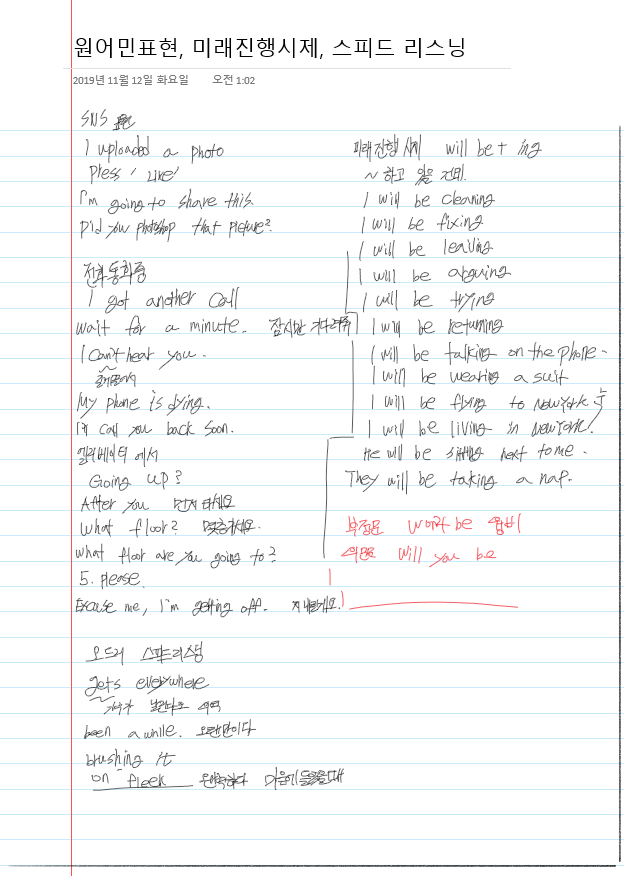 원어민표현, 미래진행시제, 스피드 리스닝
2019년 11월 12일 화요일 오전 1:02
SNS 표현
I uploaded a photo
Press 'Live'
I'm going to share this.
Did you photoshop that picture?
전화통화중
I got another call
Wait for a minute. 잠시만 기다려줘
I can't hear you.
My phone is dying.
I'll call you back soon.
엘리베이터 에서
Going up?
After you 먼저 타세요
What floor? 몇층가세요.
What floor are you going to?
5. Please.
Excuse me, I'm getting off. 지나갈게요.
오드리 스피드리스닝
gets everywhere
been a while. 오랜만이다
brushing it
on fleek 완벽하다 마음에 들었을때
미래진행시제 will be + ing
~ 하고 있을 건데.
I will be cleaning
I will be fixing
I will be leaving
I will be arguing
I will be trying
I will be returning
I will be talking on the phone.
I will be wearing a suit
I will be flying to New York
I will be living in New York.
He will be sitting next to me.
They will be taking a nap.
부정문 won't be
의문문 will you be